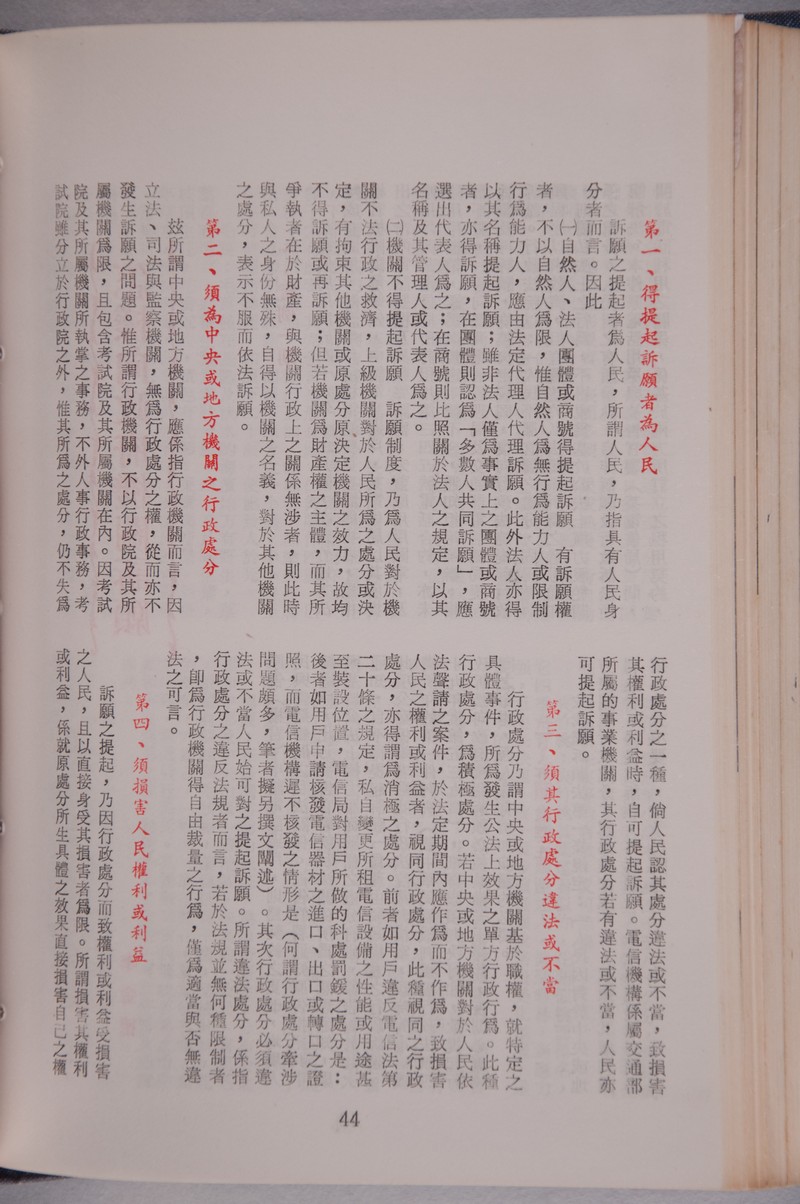 第一、得提起訴願者為人民
訴願之提起者爲人民，所謂人民，乃指具有人民身
分者而言。因此
㈠自然人、法人團體或商號得提起訴願　有訴願權
者，不以自然人爲限，惟自然人爲無行爲能力人或限制
行爲能力人，應由法定代理人代理訴願。此外法人亦得
以其名稱提起訴願；雖非法人僅爲事實上之團體或商號
者，亦得訴願，在團體則認爲「多數人共同訴願」，應
選出代表人爲之；在商號則比照關於法人之規定，以其
名稱及其管理人或代表人爲之。
㈡機關不得提起訴願　訴願制度，乃爲人民對於機
關不法行政之救濟，上級機關對於人民所爲之處分或決
定，有拘束其他機關或原處分原決定機關之效力，故均
不得訴願或再訴願；但若機關爲財產權之主體，而其所
爭執者在於財產，與機關行政上之關係無涉者，則此時
與私人之身份無殊，自得以機關之名義，對於其他機關
之處分，表示不服而依法訴願。
第二、須為中央或地方機關之行政處分
玆所謂中央或地方機關，應係指行政機關而言，因
立法、司法與監察機關，無爲行政處分之權，從而亦不
發生訴願之問題。惟所謂行政機關，不以行政院及其所
屬機關爲限，且包含考試院及其所屬機關在內。因考試
院及其所屬機關所執掌之事務，不外人事行政事務，考
試院雖分立於行政院之外，惟其所爲之處分，仍不失爲
行政處分之一種，倘人民認其處分違法或不當，致損害
其權利或利益時，自可提起訴願。電信機構係屬交通部
所屬的事業機關，其行政處分若有違法或不當，人民亦
可提起訴願。
第三、須其行政處分違法或不當
行政處分乃謂中央或地方機關基於職權，就特定之
具體事件，所爲發生公法上效果之單方行政行爲。此種
行政處分，爲積極處分。若中央或地方機關對於人民依
法聲請之案件，於法定期間內應作爲而不作爲，致損害
人民之權利或利益者，視同行政處分，此種視同之行政
處分，亦得謂爲消極之處分。前者如用戶違反電信法第
二十條之規定，私自變更所租電信設備之性能或用途甚
至裝設位置，電信局對用戶所做的科處罰鍰之處分是：
後者如用戶申請核發電信器材之進口、出口或轉口之證
照，而電信機構遲不核發之情形是（何謂行政處分牽涉
問題頗多，筆者擬另撰文闡述）。其次行政處分必須違
法或不當人民始可對之提起訴願。所謂違法處分，係指
行政處分之違反法規者而言，若於法規並無何種限制者
，卽爲行政機關得自由裁量之行爲，僅爲適當與否無違
法之可言。
第四、須損害人民權利或利益
訴願之提起，乃因行政處分而致權利或利益受損害
之人民，且以直接身受其損害者爲限。所謂損害其權利
或利益，係就原處分所生具體之效果直接損害自己之權
44